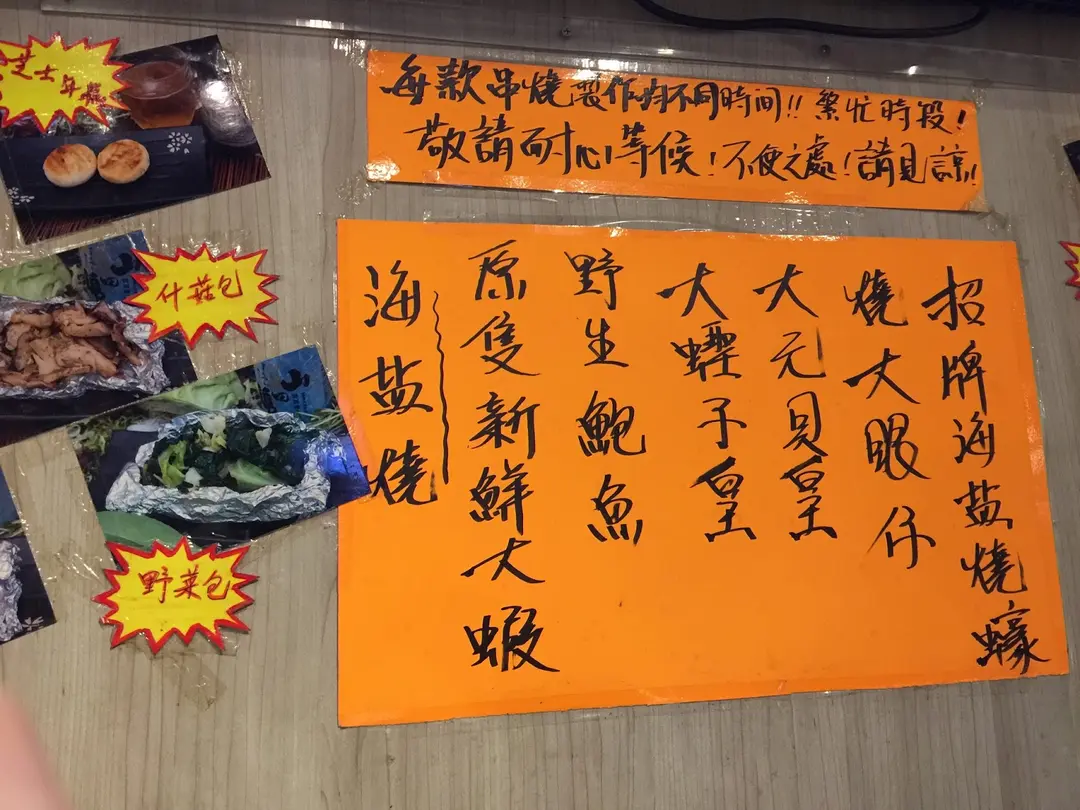 每款串燒製作均不同時间!! 繁忙時段!
敬請耐心等候!不便之處!請見諒!!
招牌海盐燒蠔
燒大眼仔
大元貝皇
大蟶子皇
野生鮑魚
原隻新鮮大蝦
海盐燒
芝士年糕
什菇包
野菜包